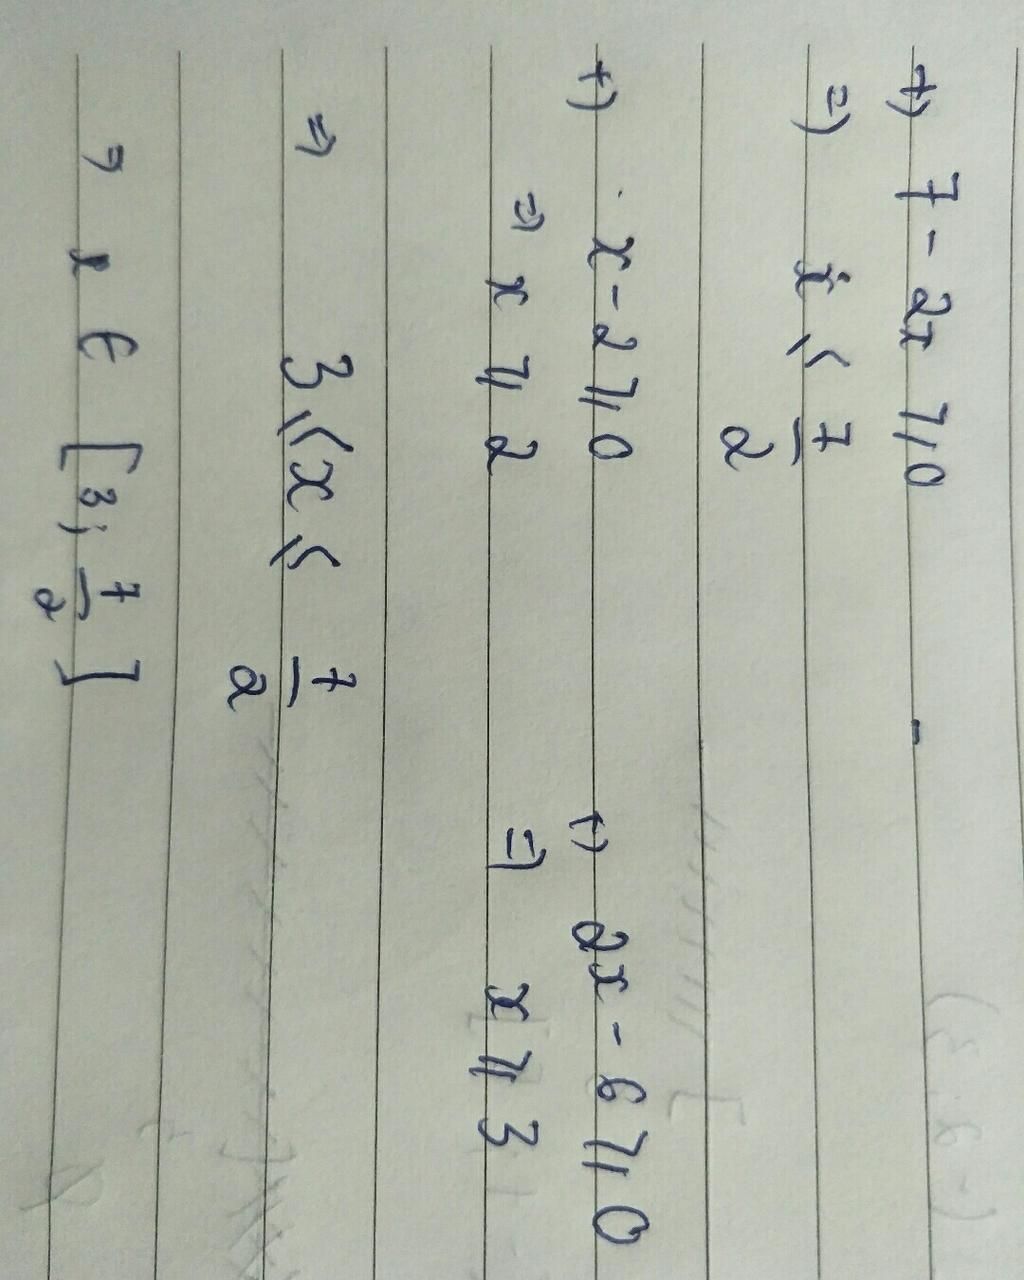 +) 7 - 2x ⩾ 0
=) x ⩽ 7/2
+) x - 2 ⩾ 0 +) 2x - 6 ⩾ 0
=) x ⩾ 2 =) x ⩾ 3
=) 3 ⩽ x ⩽ 7/2
=) x ∈ [3; 7/2]